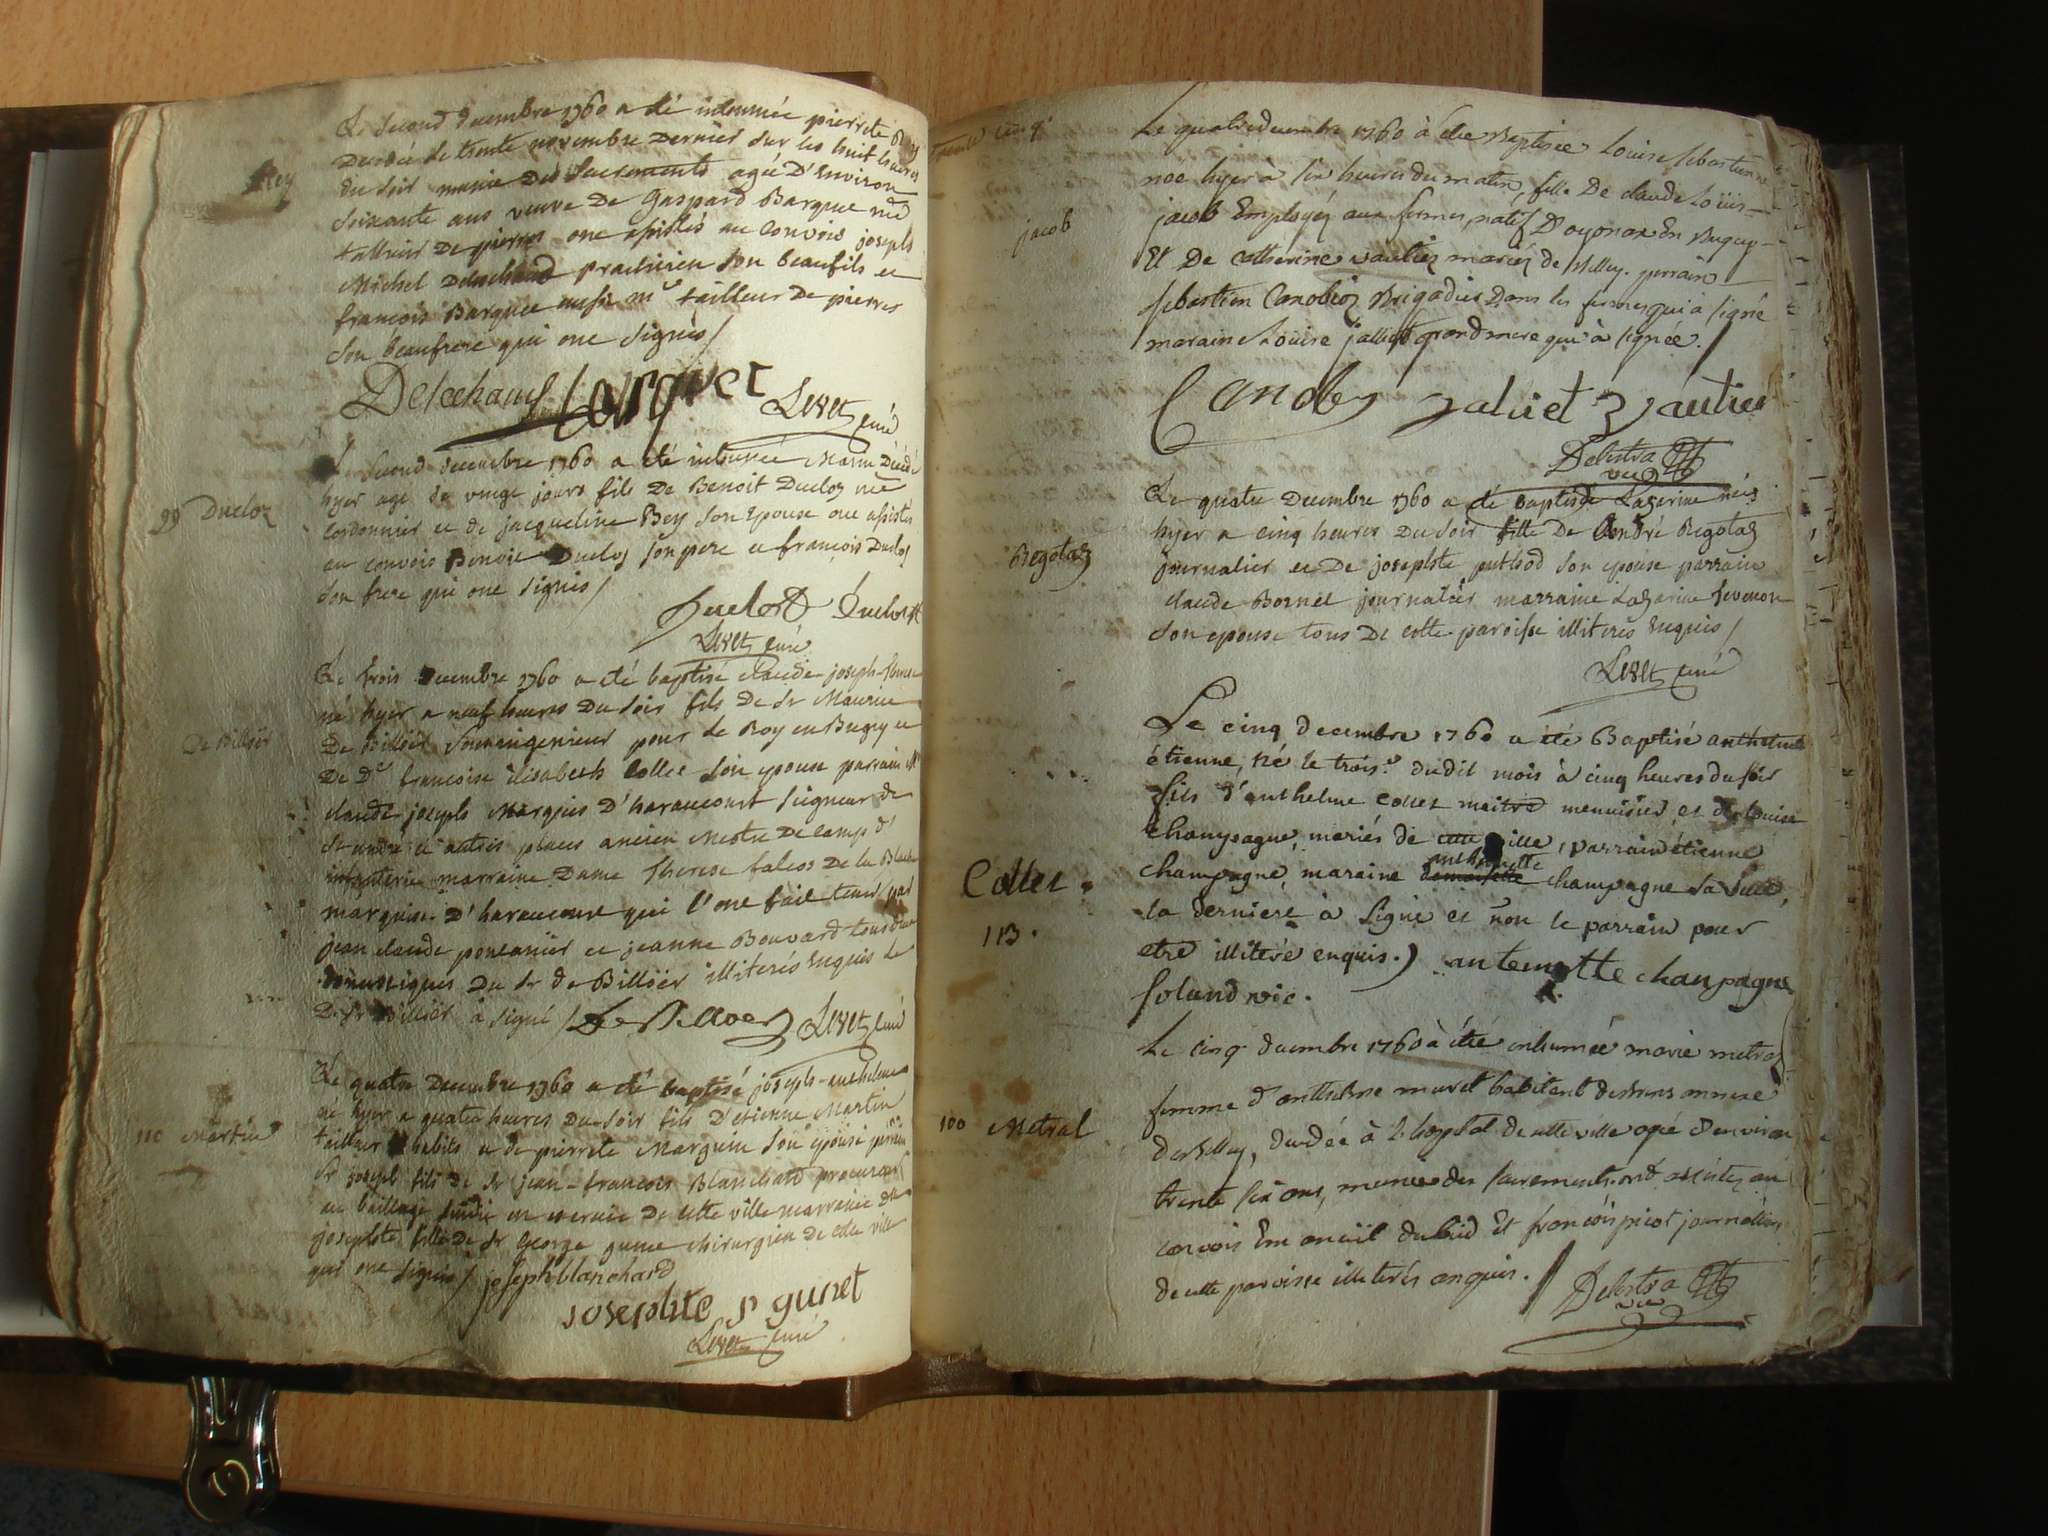 Le second decembre 1760 a été inhumée pierrete Rey
decedée le trente novembre dernier sur les huit heures
du soir munie des sacrements agée d'environ
Rey
soixante ans veuve de Gaspard Barquet me
tailleur de pierres ont assistés au convois joseph
Michel Delachaud praticien son beaufils et
françois Barquet aussi me tailleur de pierres
son beaufrere qui ont signés /
barquet
Levet curé
Le second decembre 1760 a été inhumée
hyer agé de vingt jours fils de Benoit Ducloz me
99 Ducloz
cordonnier et de jacqueline Rey son epouse ont assistés
au convois Benoit Ducloz son pere et françois Ducloz
son frere qui ont signés /
Duclos Duclos
Levet curé
Le trois decembre 1760 a été baptisé claude-joseph
né hyer a neuf heures du soir fils de Sr Maurice
De Billoët
de Billoët pour le Roy en Bugey et
de De françoise elisabeth Collet son epouse parrain
claude-joseph Marquis d'haraucourt seigneur de
St andré et autres places ancien Mestre de camp d'
infanterie marraine Dame Therese de la
marquise d'haraucourt qui l'ont fait tenir par
jean claude et jeanne Bouvard tous deux
domestiques du Sr de Billoët illiterés enquis le
Sr Billoët à signé / Levet curé
Le quatre decembre 1760 a été baptisé joseph-anthelme
né hyer a quatre heures du soir fils d'etienne Martin
110 Martin
tailleur d'habits et de pierrete Marguin son epouse parrain
Sr joseph fils de Sr jean-francois Blanchard procureur
au bailliage sindic en exercice de cette ville marraine dlle
josephte fille de Sr George gunet chirurgien de cette ville
qui ont signés / joseph blanchard
josephte gunet
Levet curé
trente cinq
Le quatre decembre 1760 à été Baptisée Louise sebastienne
née hyer à six heures du matin, fille de claude Loüis
jacob
jacob Employéz aux fermes, natif d'oyonax en Bugey
Et De Catherine vautier mariéz de Belley. parrain
sebastien Canobioz Brigadier dans les fermes qui à signé
maraine Loüise jalliet grand mere qui à signée. /
jaliet vautier
Delestra
vic
Le quatre decembre 1760 a été baptisée Lazarine née
hyer a cinq heures du soir fille de André Regotaz
Regotaz
journalier et de josephte puthod son epouse parrain
claude Bornet journalier marraine Lazarine
son epouse tous de cette paroisse illiteres enquis /
Levet curé
Le cinq decembre 1760 a été Baptisé anthelme
étienne, né le trois.e dudit mois à cinq heures du soir
fils d'anthelme collet maitre menuisier, et de louise
champagne, mariés de cette ville, parrain étienne
Collet
champagne, maraine anthemette champagne sa
la derniere à signé et non le parrain pour
113.
etre illiteré enquis.) antemette chanpagne
soland vic.
Le cinq decembre 1760 à été inhumée marie metraz
femme d'anthelme muret habitant
100 Metral
de Belley, decedée à l'hopital de cette ville agée d'environ
trente six ans, munie des sacrements. ont assistez au
convois Et françois picot journalier
de cette paroisse illiterés enquis. /
Delestra
vic